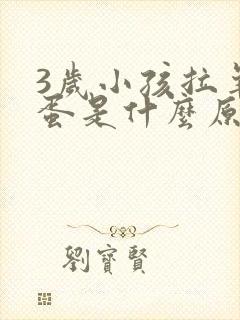 3歲小孩拉羊
蛋是什麼原
劉寶賢